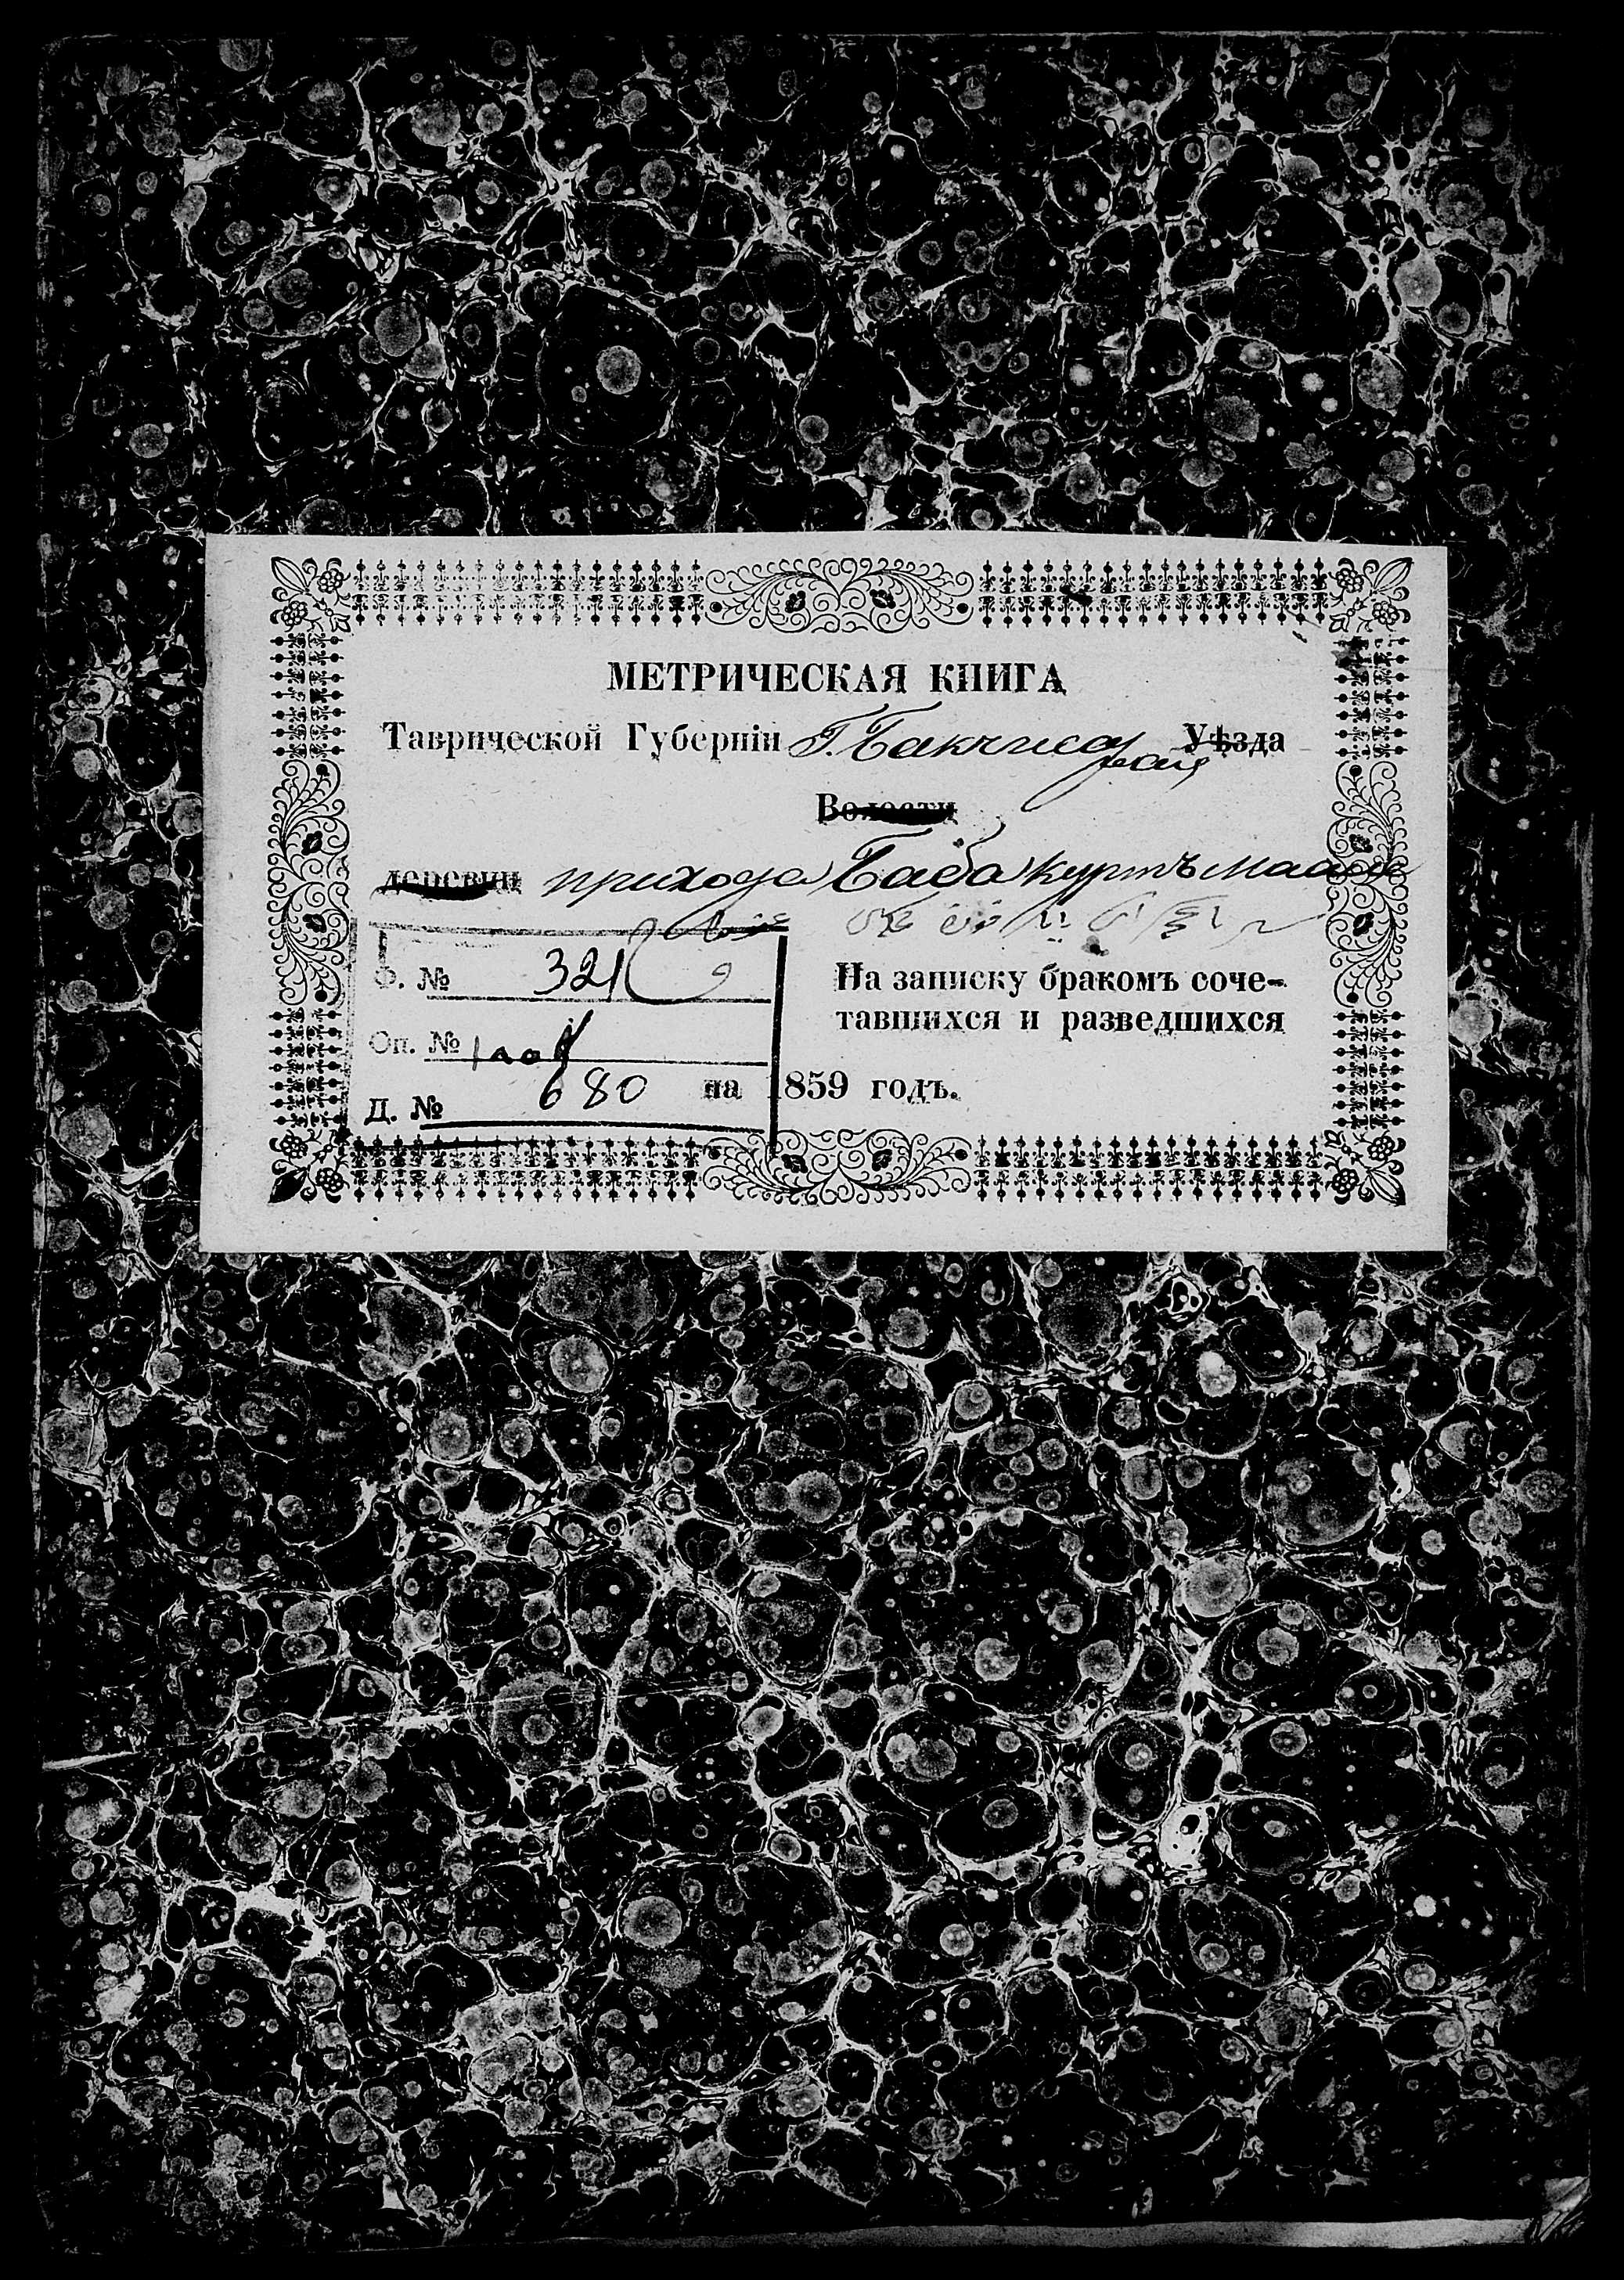 МЕТРИЧЕСКАЯ КНИГА
Таврической Губерніи Г. Бакчисарая Уѣзда
Волости
деревни прихода Баба Куртъ маале
Ф. № 321
Оп. № 1
Д. № 680
На записку бракомъ соче-
тавшихся и разведшихся
на 1859 годъ.